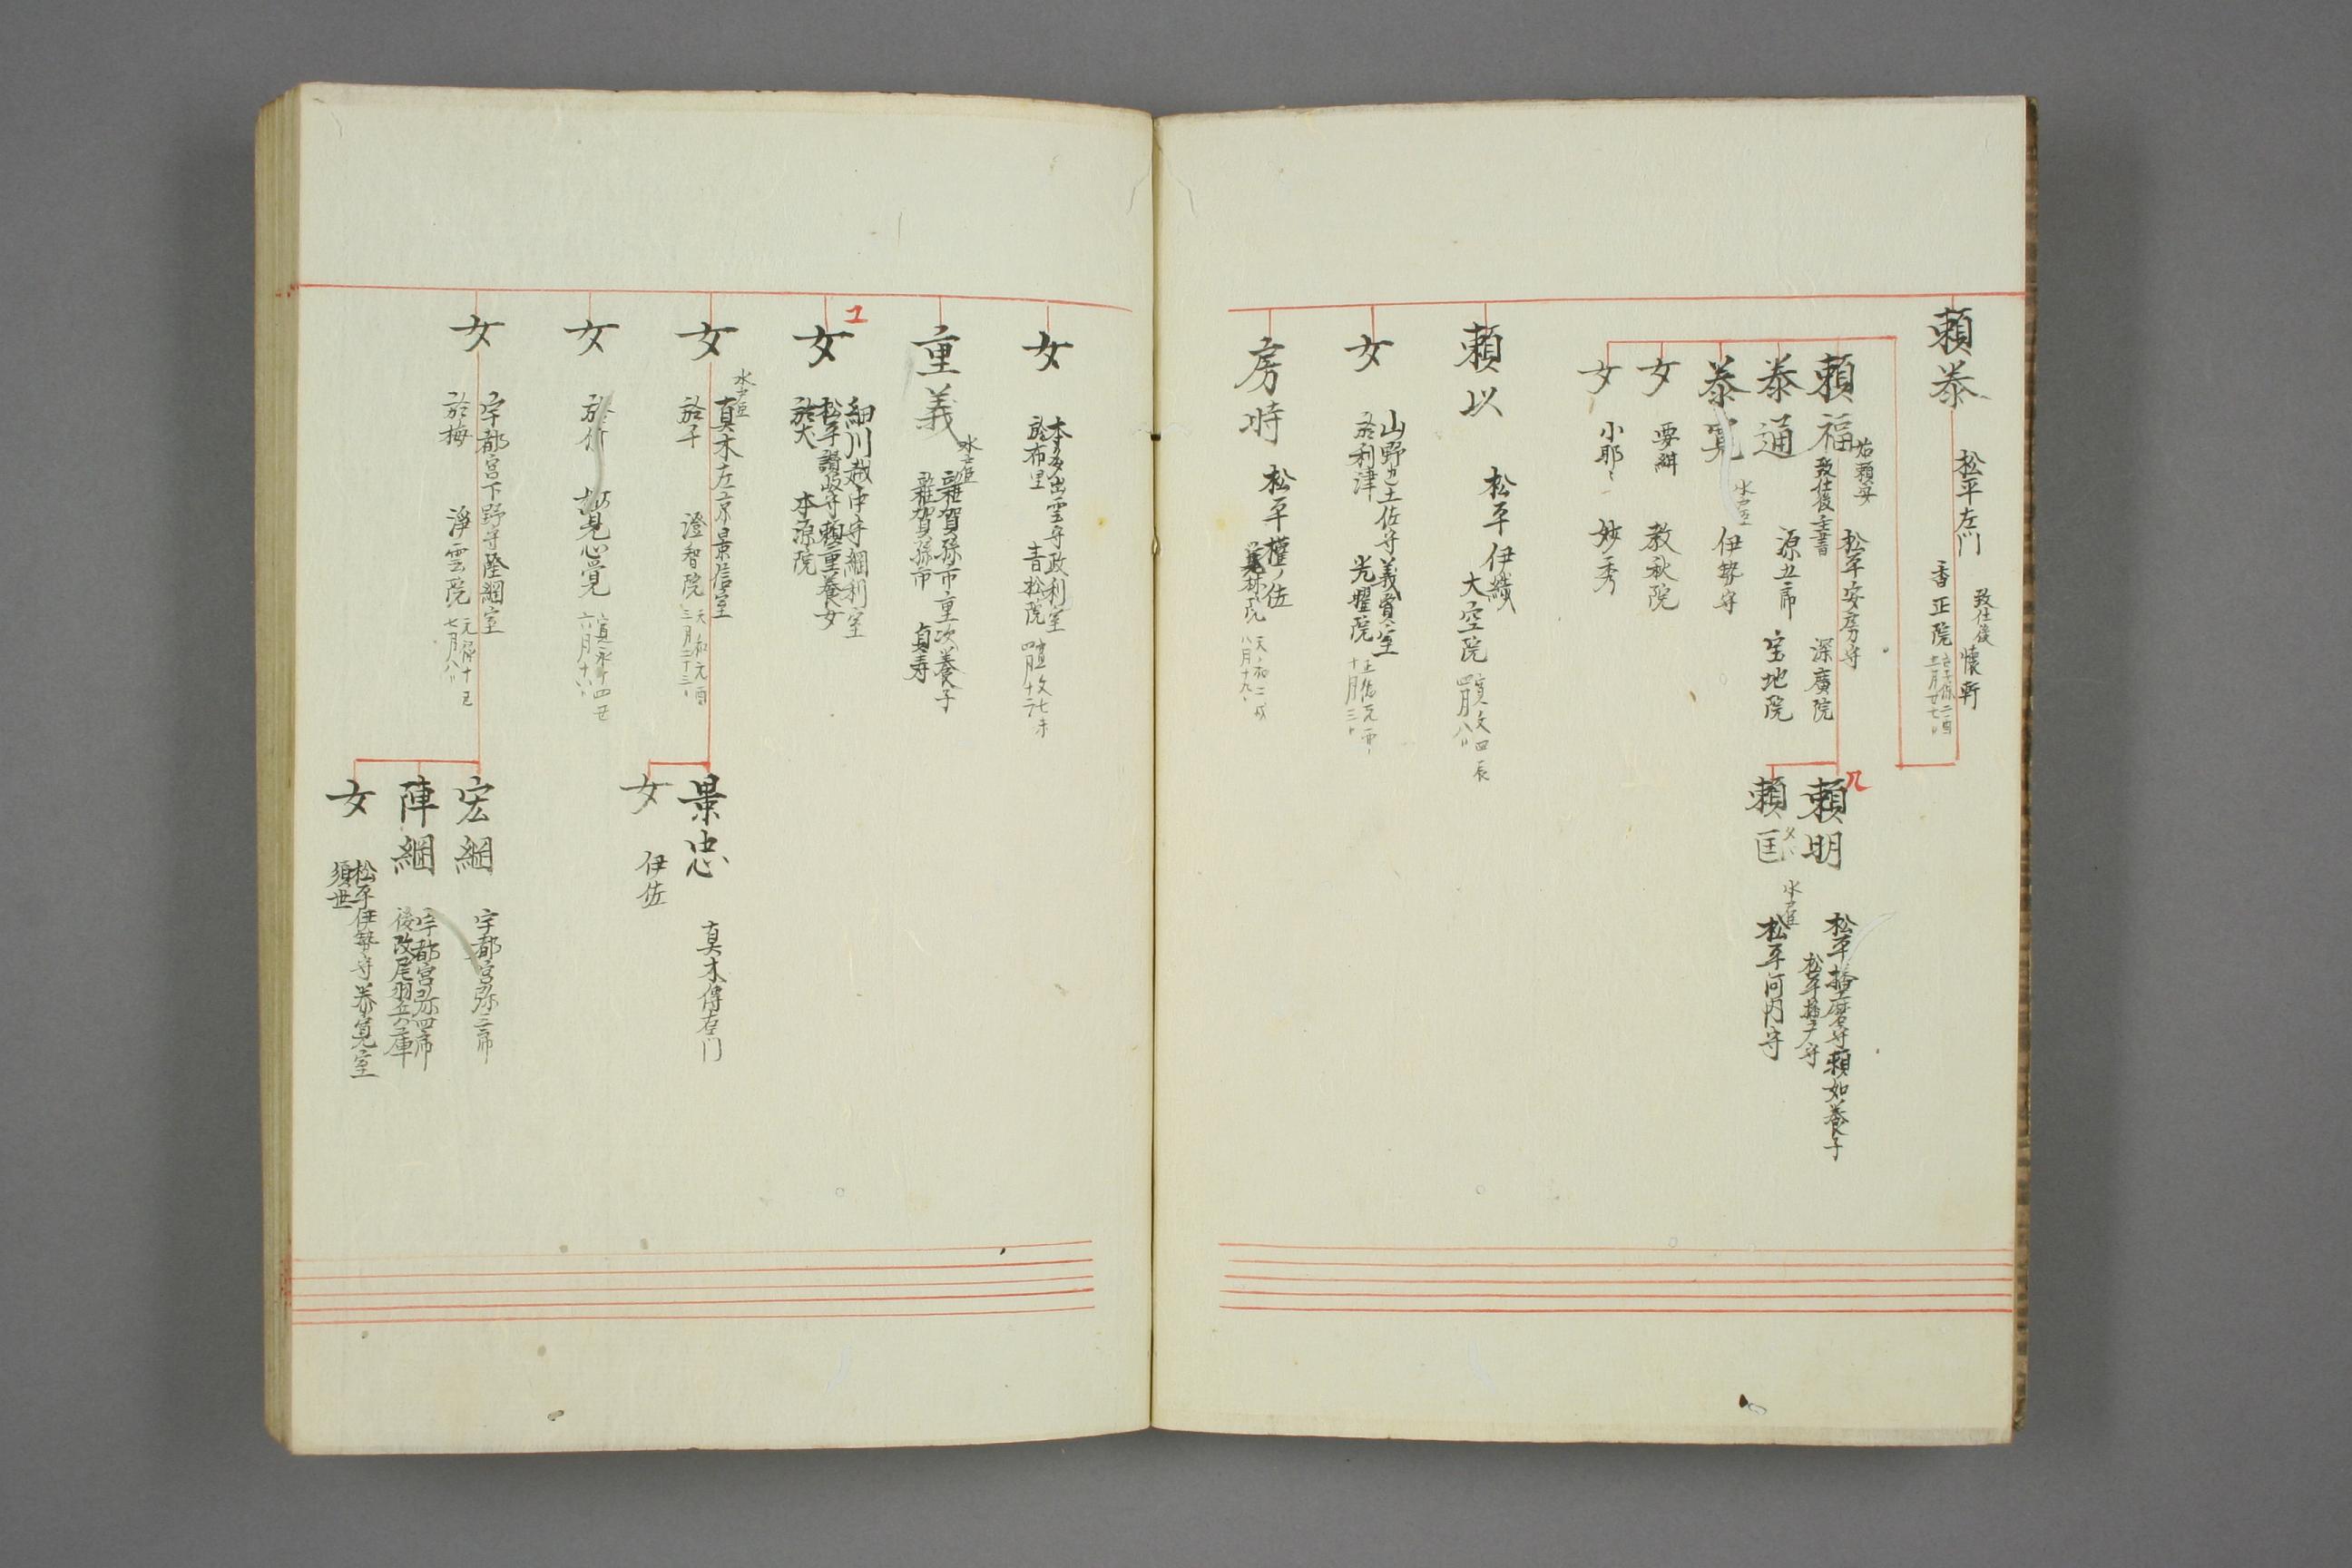 頼泰
松平左門
致仕後 懐軒
香正院
頼福
始頼安
致仕後主書
松平安房守
深廣院
頼明
松平播磨守頼如養子
松平播广守
頼匡
水戸臣
松平河内守
泰通
源五郎
宝地院
泰寛
水戸臣
伊勢守
女
要絣
教秋院
女
小耶々
妙秀
頼以
松平伊織
大空院
寛文四辰
四月八日
女
山野邊土佐守義賢室
於利津
光耀院
十月三日
房時
松平権ノ佐
天和二戌
八月十九日
女
本多出雲守政利室
於布里
青松院
寛文七未
重義
水戸臣
雜賀孫市重次養子
雜賀孫市
貞寿
女
細川越中守綱利室
松平讃岐守頼重養女
於大
本源院
女
水戸臣
真木左京景信室
於千
澄智院
天和元酉
三月二十三日
景忠
真木傳左門
女
伊佐
女
於竹
覚心
寛永十四丑
六月十八日
女
宇都宮下野守隆綱室
於梅
淨雲院
元禄十丑
七月八日
宏綱
宇都宮弥三郎
陣綱
宇都宮弥四郎
後改尾羽六右庫
女
松平伊勢守泰寛室
須世